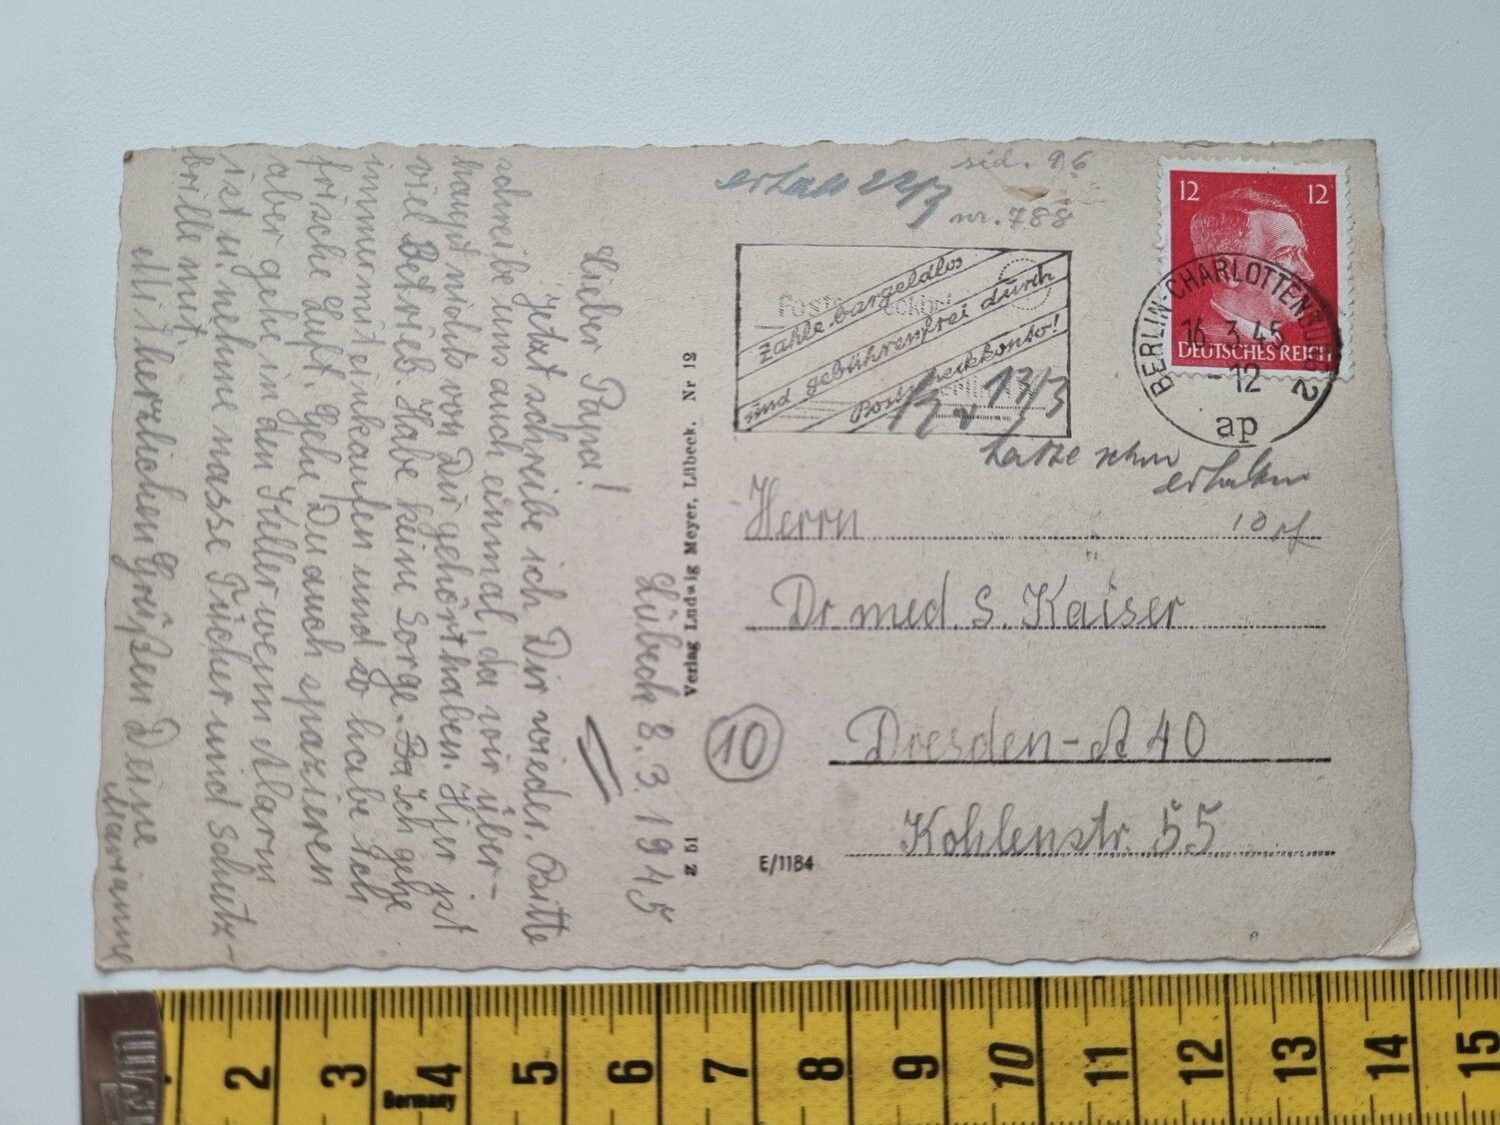 Lübeck 8.3.1945
Lieber Papa!
Jetzt schreibe ich Dir wieder. Bitte
schreibe uns auch einmal, da wir über-
haupt nichts von Dir gehört haben. Hier ist
viel Betrieb. Habe keine Sorge. Ich gehe
immer mit einkaufen und so habe ich
frische Luft. Gehe Du auch spazieren
aber gehe in den Keller wenn Alarm
ist u. nehme nasse Tücher und Schutz-
brille mit.
Mit herzlichen Grüßen Deine
Marianne
Verlag Ludwig Meyer, Lübeck. Nr 12
Z 51
erhalt 22/3
nr. 788
Zahle bargeldlos
und gebührenfrei durch
Postscheckkonto!
12 12
DEUTSCHES REICH
BERLIN-CHARLOTTENBURG 2
16.3.45
-12
ap
13/3
erhalten
Herrn
Dr med. S. Kaiser
10
Dresden-A 40
Kohlenstr. 55
E/1184
2 3 4 5 6 7 8 9 10 11 12 13 14 15
Germany